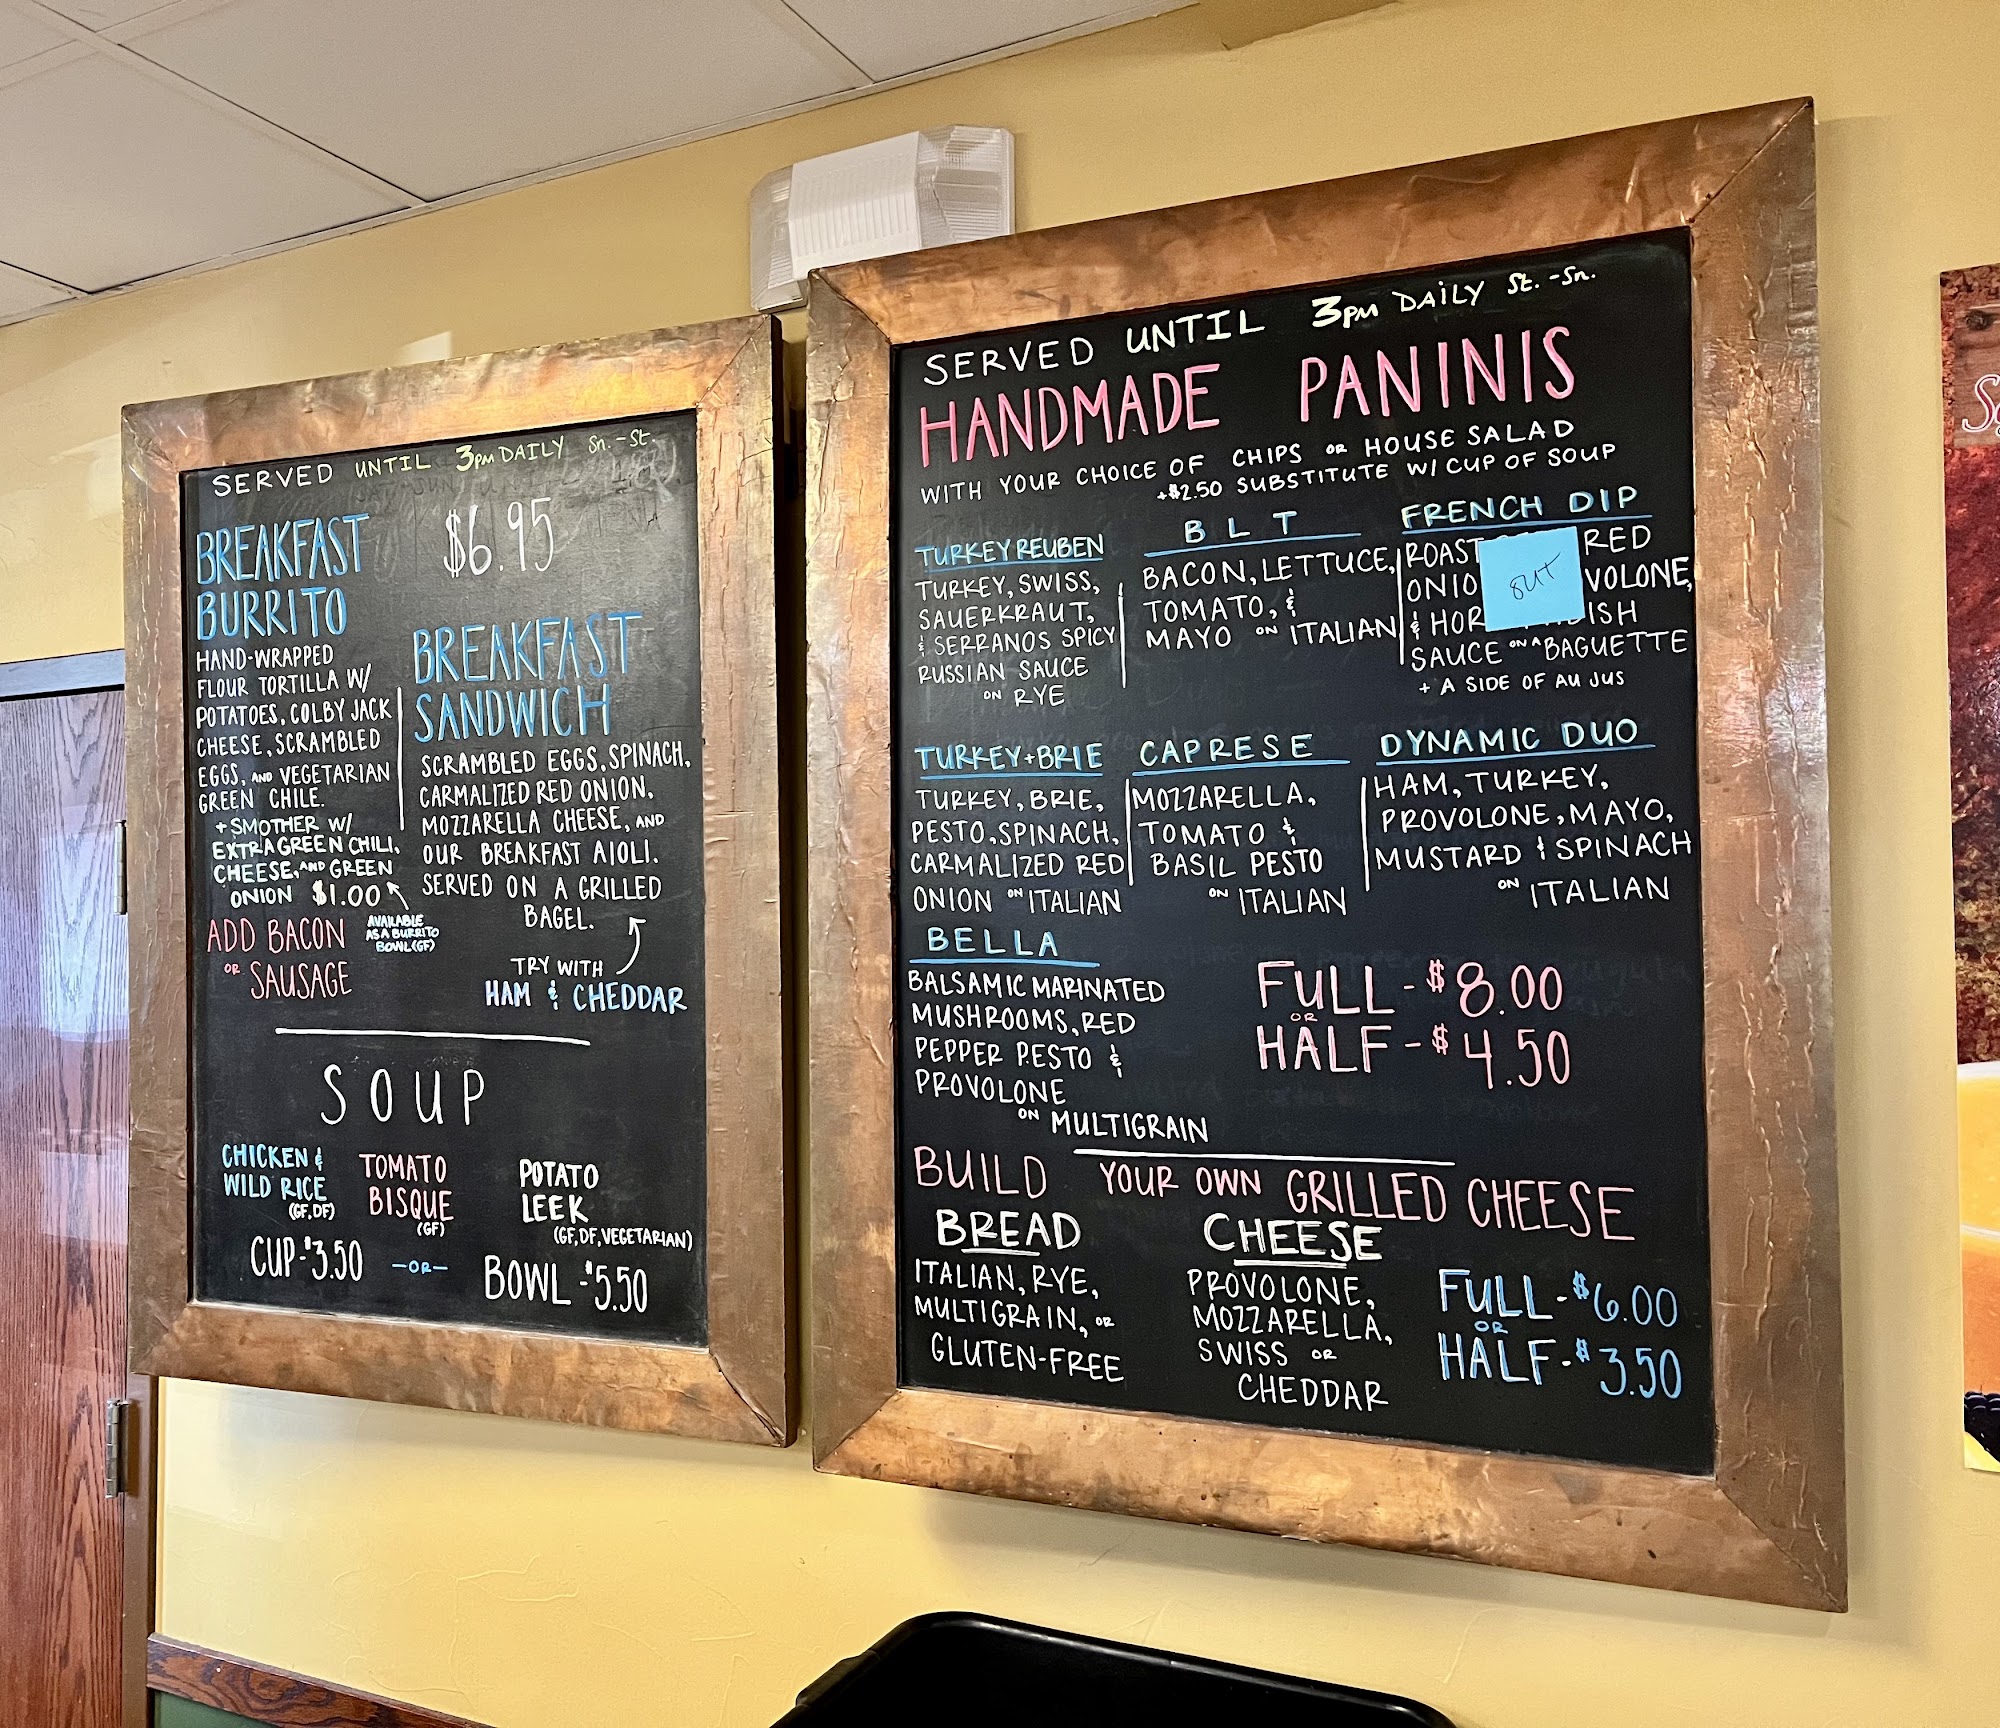 SERVED UNTIL 3PM DAILY Sn.-St.
BREAKFAST
BURRITO
$6.95
HAND-WRAPPED
FLOUR TORTILLA W/
POTATOES, COLBY JACK
CHEESE, SCRAMBLED
EGGS, AND VEGETARIAN
GREEN CHILE.
+ SMOTHER W/
EXTRA GREEN CHILI,
CHEESE, AND GREEN
ONION $1.00
AVAILABLE
AS A BURRITO
BOWL (GF)
ADD BACON
OR SAUSAGE
BREAKFAST
SANDWICH
SCRAMBLED EGGS, SPINACH,
CARMALIZED RED ONION,
MOZZARELLA CHEESE, AND
OUR BREAKFAST AIOLI.
SERVED ON A GRILLED
BAGEL.
TRY WITH
HAM & CHEDDAR
SOUP
CHICKEN &
WILD RICE
(GF, DF)
TOMATO
BISQUE
(GF)
POTATO
LEEK
(GF, DF, VEGETARIAN)
CUP - $3.50 -OR- BOWL - $5.50
SERVED UNTIL 3PM DAILY St.-Sn.
HANDMADE PANINIS
WITH YOUR CHOICE OF CHIPS OR HOUSE SALAD
+$2.50 SUBSTITUTE W/ CUP OF SOUP
TURKEY REUBEN
TURKEY, SWISS,
SAUERKRAUT,
& SERRANOS SPICY
RUSSIAN SAUCE
ON RYE
BLT
BACON, LETTUCE,
TOMATO, &
MAYO ON ITALIAN
FRENCH DIP
ROAST RED
ONIO VOLONE,
& HOR ISH
SAUCE ON A BAGUETTE
+ A SIDE OF AU JUS
OUT
TURKEY + BRIE
TURKEY, BRIE,
PESTO, SPINACH,
CARMALIZED RED
ONION ON ITALIAN
CAPRESE
MOZZARELLA,
TOMATO &
BASIL PESTO
ON ITALIAN
DYNAMIC DUO
HAM, TURKEY,
PROVOLONE, MAYO,
MUSTARD & SPINACH
ON ITALIAN
BELLA
BALSAMIC MARINATED
MUSHROOMS, RED
PEPPER PESTO &
PROVOLONE
ON MULTIGRAIN
FULL - $8.00
OR
HALF - $4.50
BUILD YOUR OWN GRILLED CHEESE
BREAD
ITALIAN, RYE,
MULTIGRAIN, OR
GLUTEN-FREE
CHEESE
PROVOLONE,
MOZZARELLA,
SWISS OR
CHEDDAR
FULL - $6.00
OR
HALF - $3.50